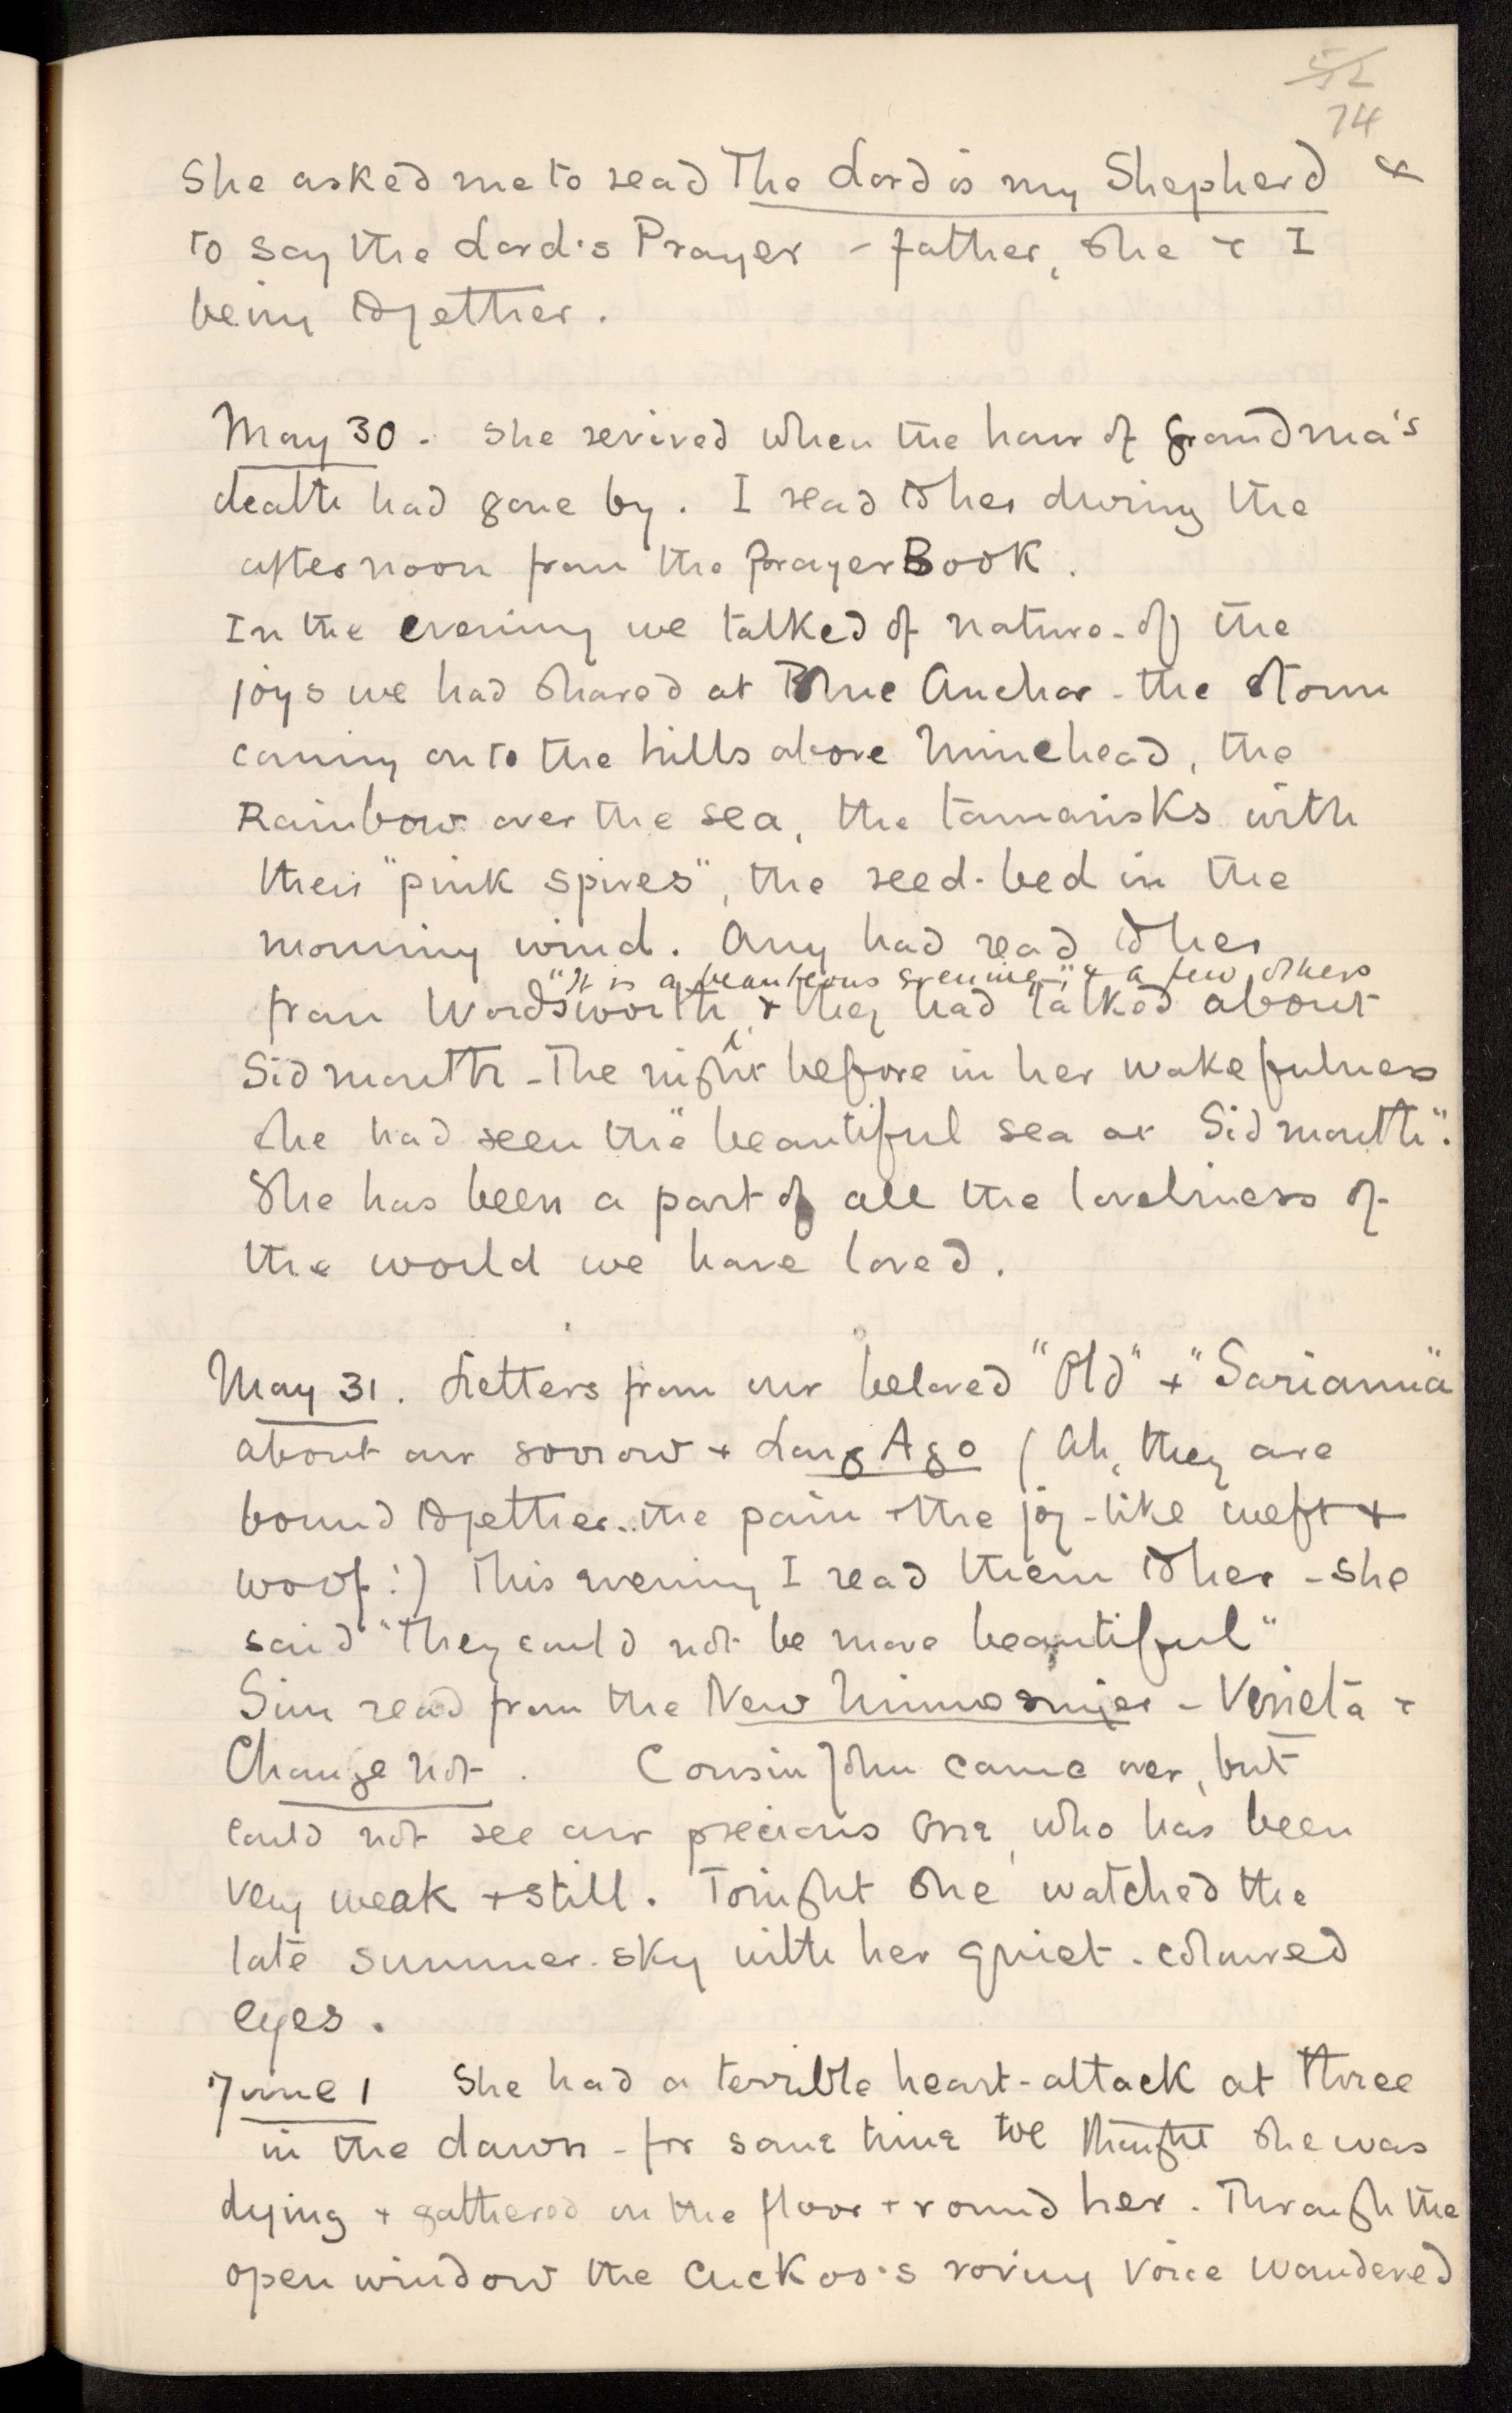 52
74
She asked me to read The Lord is my Shepherd &
to say the Lord's Prayer - father, she & I
being together.
May 30. She revived when the hour of Grandma's
death had gone by. I read to her during the
afternoon from the Prayer Book.
In the evening we talked of nature - of the
joys we had shared at Blue Anchor - the storm
coming on to the hills above Minehead, the
Rainbow over the sea, the tamarisks with
their "pink spires", the seed-bed in the
morning wind. Amy had read to her
"It is a beauteous evening," & a few others
from Wordsworth & they had talked about
Sidmouth - The night before in her wakefulness
she had seen the "beautiful sea at Sidmouth".
She has been a part of all the loveliness of
the world we have loved.
May 31. Letters from our beloved "Old" + "Sarianna"
about our sorrow + Long Ago (Ah, they are
bound together.. the pain + the joy - like weft +
woof!) This evening I read them to her - she
said "They could not be more beautiful"
Sim read from the New - Venetà &
Change not. Cousin John came over, but
could not see our precious One, who has been
very weak + still. Tonight she watched the
late summer-sky with her quiet-coloured
eyes.
June 1 She had a terrible heart-attack at three
in the dawn - for some time we thought she was
dying + gathered on the floor + round her. Through the
open window the Cuckoo's roving voice wandered